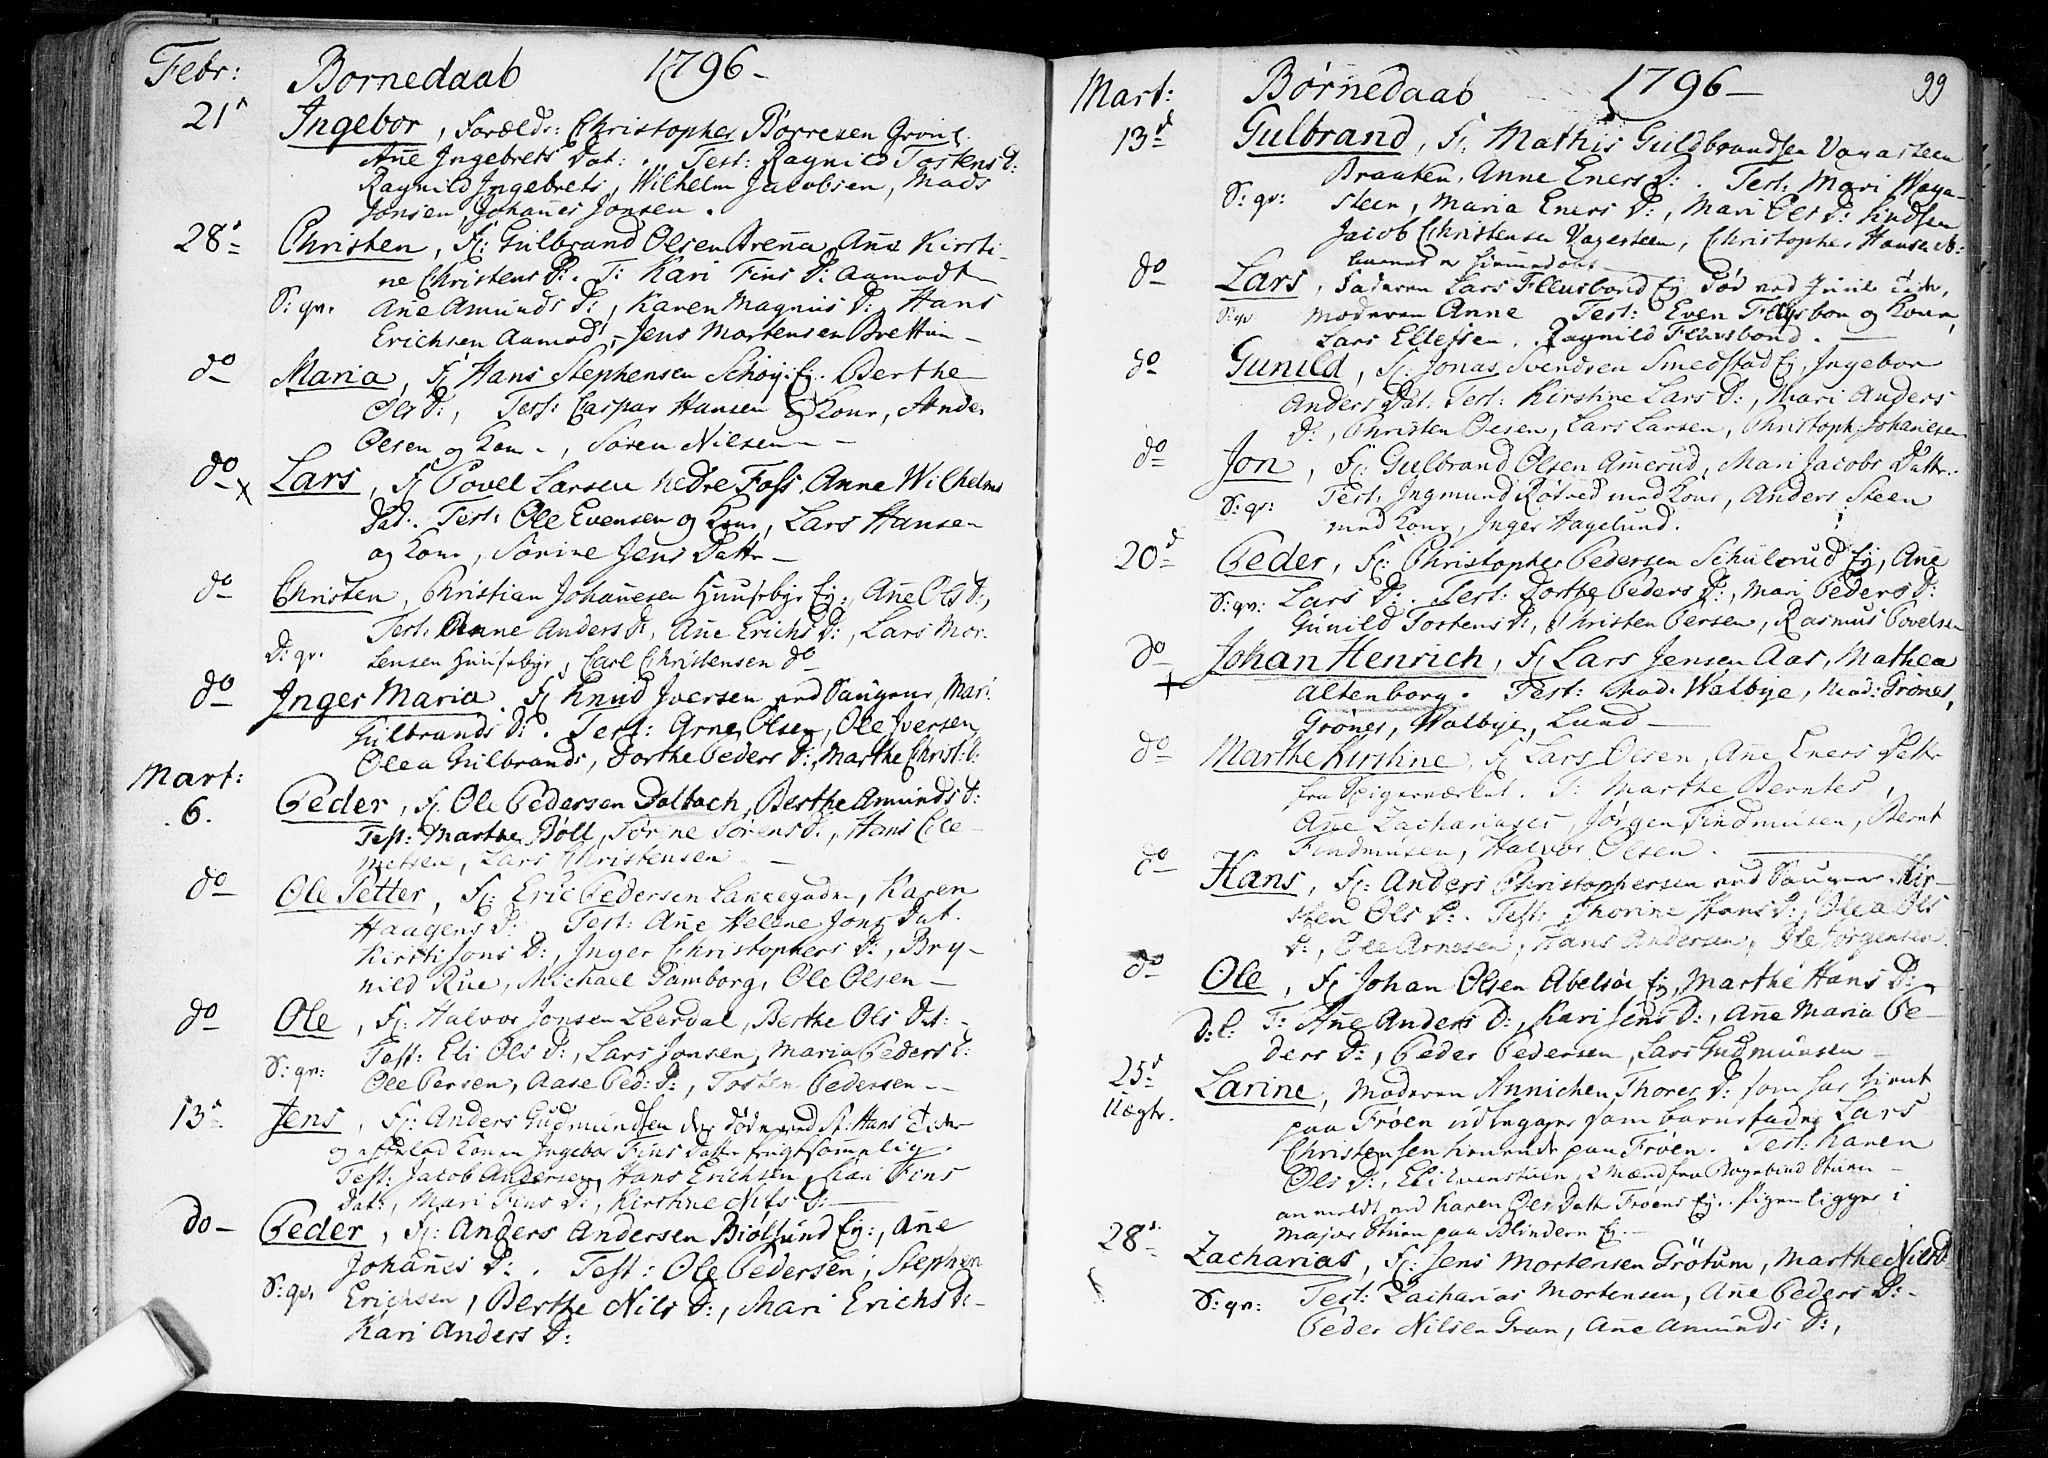 Febr: Bornedaab 1796 -
21. Ingebor, Foræld: Christopher Börresen Grönl.
Añe Ingebrets Dat: . Test: Ragnild Tostens D:
Ragnild Ingebrets, Wilhelm Jacobsen, Mads
Jonsen, Johañes Jonsen.
28. Christen, F: Gulbrand Olsen Breña, Añe Kirsti-
ne Christens D:. T: Kari Fins D: Aamodt
S: qv. Añe Amunds D:, Karen Magnus D:, Hans
Erichsen Aamod, Jens Mortensen Bretthun -
do Maria, F: Hans Stephensen Schöy. Ej. Berthe
Ols D:, Test: Caspar Hansen og Kone, Ande.
Olsen og Kone, Sören Nilsen -
do x Lars, F: Povel Larsen nedre Foss, Anne Wilhelms
Dat. Test: Ole Evensen og Kone, Lars Hansen
og Kone, Sörine Jens Dattr -
do Christen, Christian Johañesen Huusebye Ej:, Añe Ols D:,
Test: Anne Anders D:, Añe Erichs D:, Lars Mor-
D: qv. tensen Huusebye, Carl Christensen do
do Inger Maria. F: Knud Iversen ved Saugene, Mari
Gulbrands D:. Test: Arne Olsen, Ole Iversen
Olea Gulbrands, Dorthe Peders D:, Marthe Christ: D:
Mart:
6. Peder, F: Ole Pedersen Dalbach, Berthe Amunds D:
Test: Marthe Böll, Sörine Sörens D:, Hans Cle-
metsen, Lars Christensen -
do Ole Petter, F: Eric Pedersen Lakkegaden, Karen
Haagens D: Test: Añe Helene Jons Dat.
Kirsti Jons D:, Inger Christophers D:, Bry-
nild Rue, Michael Tamborg, Ole Olsen -
do Ole, F: Halvor Jonsen Leerdal, Berthe Ols Dat:
Test: Eli Ols D:, Lars Jonsen, Maria Peders D:
S: qv: Ole Persen, Aase Ped: D:, Tosten Pedersen -
13. Jens, F: Anders Gudmundsen der döde ved St: Hans Tider
og efterlod Konen Ingebor Fins Datter frugtsommelig.
Test: Jacob Andersen, Hans Erichsen, Kari Fins
Datt:, Mari Fins D:, Kirstine Nils D: -
do - Peder, F: Anders Andersen Biölsund Ej:, Añe
Johañes D: . Test: Ole Pedersen, Stephen
S: qv. Erichsen, Berthe Nils D:, Mari Erichs D:
Kari Anders D:
Mart: Börnedaab 1796 - 99
13d Gulbrand, F: Mathis Guldbrandsen Vaxasteen
Braaten, Anne Eners D: . Test: Mari Waxa-
S: qv: steen, Maria Eners D:, Mari Ols D: Lindsen
Jacob Christensen Vagesteen, Christopher Hansen
do Lars, Faderen Lars Fleusbond Ej död ved Juule Tider,
S: qv. Moderen Anne Test: Even Fleysbon og Kone,
Lars Ellefsen, Ragnild Fleusbond. -
do Gunild, F: Jonas Svendsen Smedstad Ej, Ingebor
Anders Dat. Test: Kirstine Lars D:, Mari Anders
D:, Christen Olsen, Lars Larsen, Christoph: Johañesen
do Jon, F: Gulbrand Olsen Amerud, Mari Jacobs Dattr.
S: qv: Test: Ingmund Rötved med Kone, Anders Steen
med Kone, Inger Hagelund.
20d Peder, F: Christopher Pedersen Schulerud Ej, Añe
S: qv: Lars D:. Test: Dorthe Peders D:, Mari Peders D:
Gunild Tostens D:, Christen Persen, Rasmus Povelsen
do + Johan Henrich, F: Lars Jensen Aas, Mathea
Altenborg. Test: Mad: Walbye, Mad: Grönes,
Grönes, Walbye, Lund -
do Marthe Kirstine, F: Lars Olsen, Añe Eners Dattr
fra Spigerværket. T: Marthe Berntes,
Añe Zachariases, Jörgen Findmusen, Bernt
Findmusen, Halvor Olsen.
do Hans, F: Anders Christophersen ved Saugene Kir-
sten Ols D:. Test: Thorine Hans D:, Olea Ols
D:, Ole Arnesen, Hans Andersen, Ole Jörgensen.
do Ole, F: Johan Olsen Abelsöe Ej, Marthe Hans D:
D: l: T: Añe Anders D:, Kari Jens D:, Añe Maria Pe-
ders D:, Peder Pedersen, Lars Gudmunsen -
25d Larine, Moderen Annichen Thores D: som har tient
Uægte. paa Fröen udlegger som barnefader Lars
Christensen tienende paa Fröen. Test: Karen
Ols D:, Eli Evenstuen, 2 Mænd fra Bogebind Stuen -
anmeldt ved Karen Ols Datter Fröens Ej. Pigen ligger i
Major Stuen paa Blindern Ej. -
28d. Zacharias, F: Jens Mortensen Grötum, Marthe Nils D.
S: qv: Test: Zacharias Mortensen, Añe Peders D: -
Peder Nilsen Gran, Añe Amunds D:,